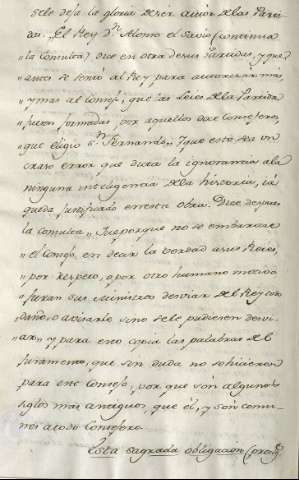 sele deja la gloria de ser autor de las Parti-
das. El Rey Dn. Alonso el Savio (continua
"la Consulta) dice en otra de sus Partidas, y que
para autorizar mas,
"y mas al Consejo, que las Leies de la Partida
"fueron formadas por aquellos doce Consejeros,
"que eligio Sn. Fernando. Y que esto sea un
craso error que dicta la ignorancia, o la
ninguna inteligencia de la historia, ià
queda justificado en esta obra. Dice despues
la consulta "que porque no se embarazase
"el Consejo en decir la verdad a sus Reies,
"por respeto, o por otro humano motivo
"juran sus ministros desviar del Rey todo
"daño, o avisarlo si no se le pudiesen desvi-
"ar" y para eso copia las palabras del
Juramento, que sin duda no se hicieron
para este Consejo, por que son algunos
siglos mas antiguos, que él, y son comu-
nes a todo Consejero.
Esta sagrada obligacion